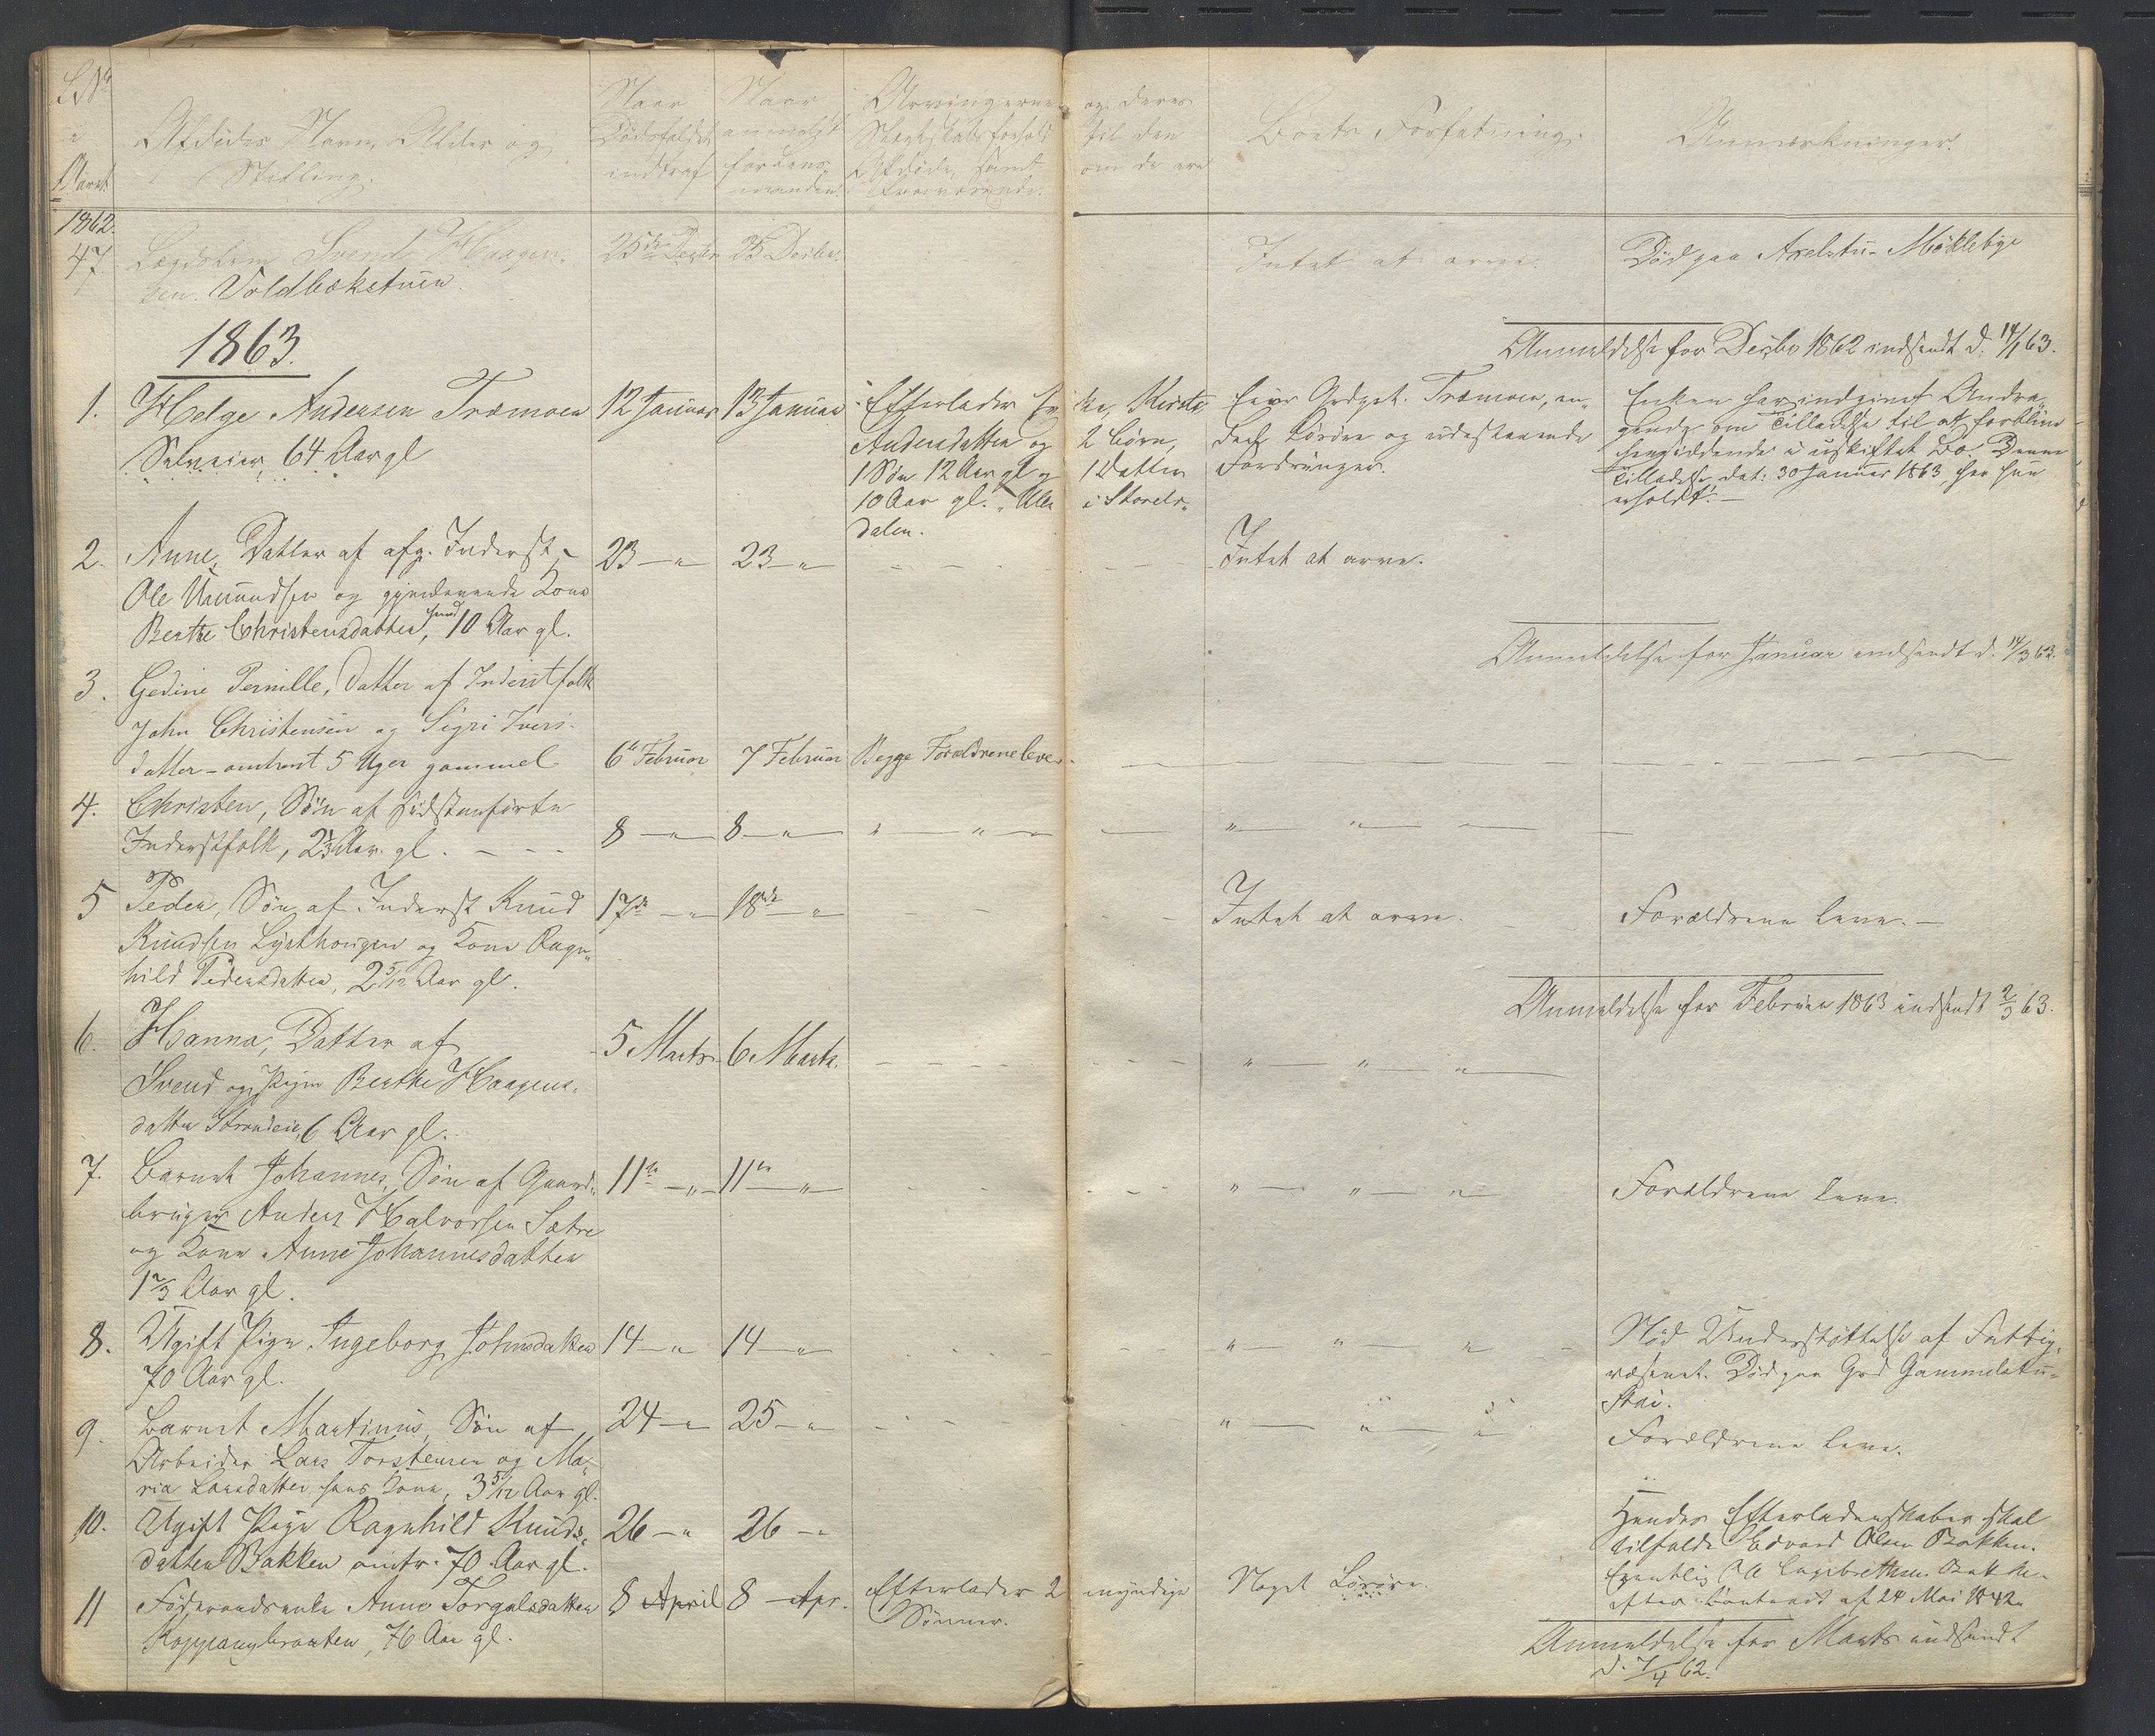 LN
i
Aaret
Afdødes Navn, Alder og
Stilling.
Naar
Dødsfaldet
indtraf
Naar
anmeldt
for Lens-
manden.
Arvingernes og deres
Slægtskabsforhold til den
Afdøde, samt om de ere
fraværende.
Boets Forfatning.
Anmærkninger.
1862.
47. Lægdslem Svend Haagen-
sen. Voldbækstuen.
25de Decbr 25 Decbr.
Intet at arve.
Død paa Axelstu- Møklebye
Anmeldelse for Decbr 1862 indsendt d. 14/1 63.
1863.
1. Helge Andersen Træmoen 12 Januar 13 Januar
Selveier, 64 Aar gl
Efterlader Enke, Marthe
Andersdatter og 2 Børn,
1 Søn 12 Aar gl og 1 Datter
10 Aar gl. i Storels-
dalen.
Eier Godset. Træmoen, en-
deel Løsøre og udestaaende
Fordringer.
Enken har indgivet Andra-
gende om Tilladelse til at forblive
hensiddende i uskiftet Bo. Denne
Tilladelse dat: 30 Januar 1863, har hun
erholdt. -
2. Anne, Datter af afg. Inderst
Ole Amundsen og gjenlevende Kone
Berthe Christensdatter, 10 Aar gl.
23 - " 23 - "
Intet at arve.
Anmeldelse for Januar indsendt d. 14/3 63.
3. Gedine Pernille, Datter af Inderstfolk
John Christensen og Sigri Ivers-
datter - omtrent 5 Uger gammel
6te Februar 7 Februar Begge Forældrene leve.
4. Christen, Søn af sidstanførte
Inderstfolk, 2⅓ Aar gl.
8 - " 8 - " " "
" " -
5 Peder, Søn af Inderst Knud
Knudsen Lysthougen og Kone Ragn-
hild Pedersdatter, 2 5/12 Aar gl.
17de - " 18de - "
Intet at arve. Forældrene leve. -
Anmeldelse for Februar 1863 indsendt 2/3 63.
6. Hanna, Datter af
Svend og Pigen Berthe Haagens-
datter Strandeie, 6 Aar gl.
5 Marts 6 Marts.
" " "
7. Barnet Johannes, Søn af Gaard-
bruger Anders Halvorsen Sætre
og Kone Anne Johannesdatter
1 2/3 Aar gl.
11te - " 11te - "
" " " Forældrene leve.
8. Ugift Pige Ingeborg Johnsdatter 14 - " 14 - "
70 Aar gl.
" " "
Nød Understøttelse af Fattig-
væsenet. Død paa Grd Gammelstu-
9. Barnet Martinus, Søn af
Arbeider Lars Torstensen og Ma-
ria Larsdatter hans Kone, 3 5/12 Aar gl.
24 - " 25 - "
" " " Forældrene leve.
10. Ugift Pige Ragnhild Knuds-
datter Bakken omtr. 70 Aar gl.
26 - " 26 - "
Hendes Efterladenskaber skal
tilfalde Edvard Olsen Bakken.
Egentlig Ole Engebrethsen Bakken
efter Contract af 24 Mai 1842
11 Føderaadsenke Anne Torgalsdatter
Koppangbraaten, 76 Aar gl.
8 April 8 - Apr. Efterlader 2 myndige
Sønner.
Noget Løsøre.
Anmeldelse for Marts indsendt
d. 7/4 62.